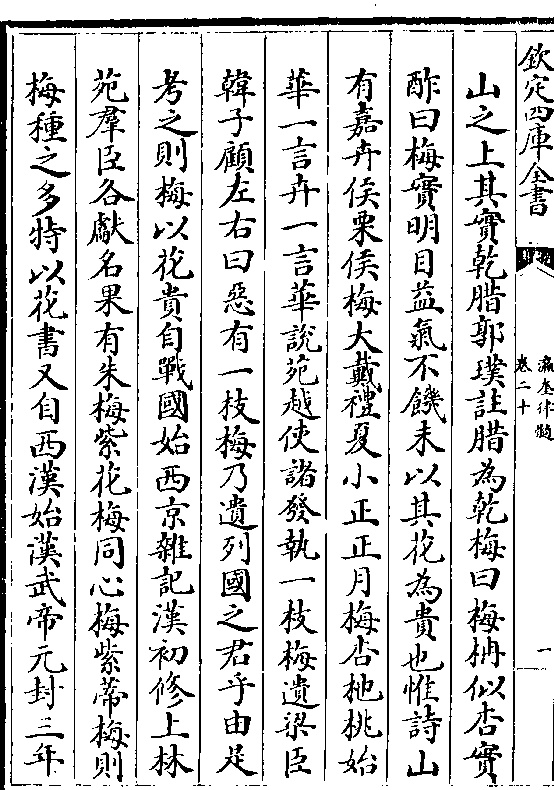 欽定四庫全書
瀛奎律髓
卷二十
一
山之上其實乾腊郭璞註腊為乾梅曰梅枏似杏實
酢曰梅實明目益氣不饑未以其花為貴也惟詩山
有嘉卉侯栗侯梅大戴禮夏小正正月梅杏杝桃始
華一言卉一言華說苑越使諸發執一枝梅遺梁臣
韓子顧左右曰惡有一枝梅乃遺列國之君乎由是
考之則梅以花貴自戰國始西京雜記漢初修上林
苑羣臣各獻名果有朱梅紫花梅同心梅紫蔕梅則
梅種之多特以花書又自西漢始漢武帝元封三年